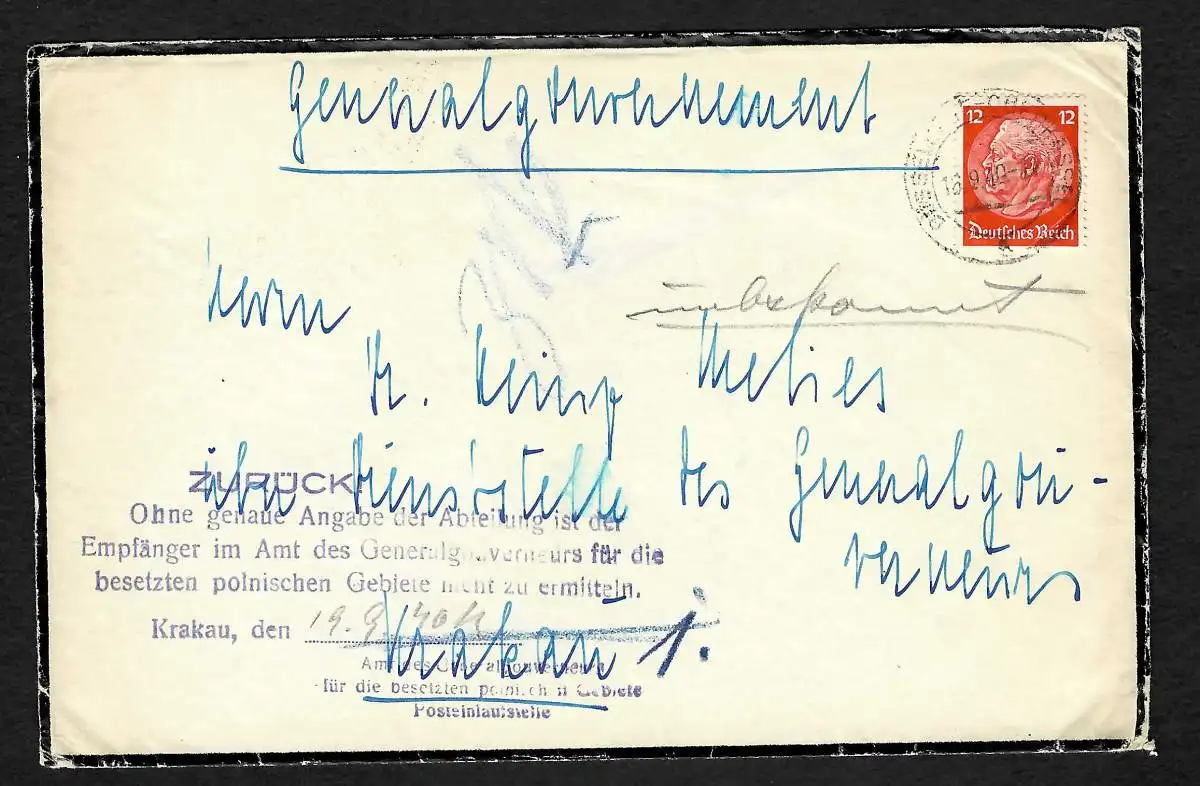 Generalgouvernement
12 12
16.9.40
Deutsches Reich
unbekannt
Herrn
Dr. Heinz Melies
über Dienststelle des Generalgou-
verneurs
Krakau 1.
ZURÜCK!
Ohne genaue Angabe der Abteilung ist der
Empfänger im Amt des Generalgouverneurs für die
besetzten polnischen Gebiete nicht zu ermitteln.
Krakau, den 19.9.40
Amt des Generalgouverneurs
für die besetzten polnischen Gebiete
Posteinlaufstelle